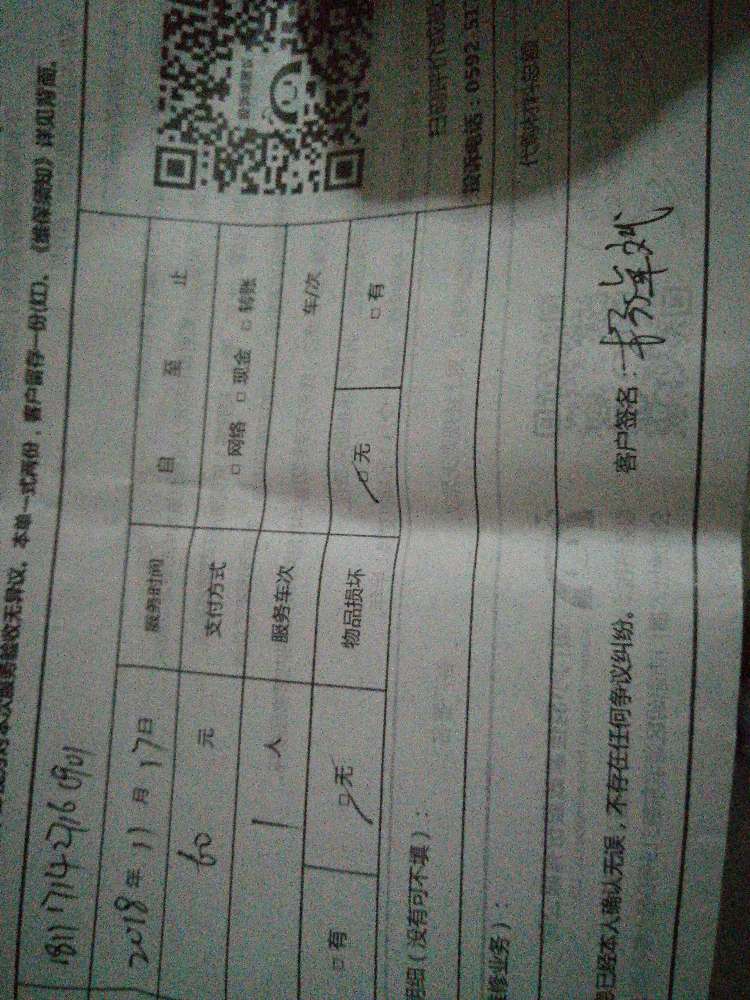 本次服务验收无异议。本单一式两份，客户留存一份(红)。《维保须知》详见背面。
1811171427160901
2018年11月17日 服务时间 自 至 止
60 元 支付方式 □网络 □现金 □转账
1 人 服务车次 车/次
□有 □无 物品损坏 □无 □有
明细（没有可不填）：
投诉电话：0592-57
修业务）：
已经本人确认无误，不存在任何争议纠纷。 客户签名：